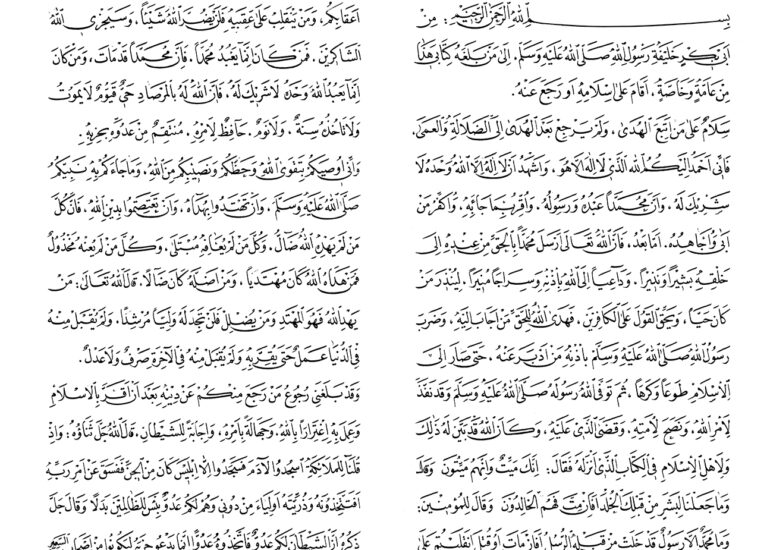 بسم الله الرحمن الرحيم . من
ابى بكر خليفة رسول الله صلى الله عليه وسلم . الى من بلغه كتابى هذا
من عامة وخاصة . اقام على اسلامه او رجع عنه .
سلام على من اتبع الهدى ، ولم يرجع بعد الهدى الى الضلالة والعمى .
فانى احمد اليكم الله الذى لا اله الا هو ، واشهد ان لا اله الا الله وحده لا
شريك له . وان محمدا عبده ورسوله . واقر بما جاء به . واكفر من
ابى واجاهده . اما بعد . فان الله تعالى ارسل محمدا بالحق من عنده الى
خلقه بشيرا ونذيرا . وداعيا الى الله باذنه وسراجا منيرا . لينذر من
كان حيا ، ويحق القول على الكافرين . فهدى الله للحق من اجاب اليه . وضرب
رسول الله صلى الله عليه وسلم باذنه من ادبر عنه . حتى صار الى
الاسلام طوعا وكرها . ثم توفى الله رسوله صلى الله عليه وسلم وقد نفذ
لامر الله ، ونصح لامته . وقضى الذى عليه . وكان الله قد بين له ذلك
ولاهل الاسلام فى الكتاب الذى انزله فقال : انك ميت وانهم ميتون وقال
وما جعلنا لبشر من قبلك الخلد افإن مت فهم الخالدون وقال للمؤمنين :
وما محمد الا رسول قد خلت من قبله الرسل افإن مات او قتل انقلبتم على
اعقابكم ، ومن ينقلب على عقبيه فلن يضر الله شيئا ، وسيجزى الله
الشاكرين . فمن كان انما يعبد محمدا . فان محمدا قد مات ، ومن كان
انما يعبد الله وحده لا شريك له . فان الله له بالمرصاد حى قيوم لا يموت
ولا تاخذه سنة . ولا نوم . حافظ لامره . منتقم من عدوه بحزبه .
وانى اوصيكم بتقوى الله وحظكم ونصيبكم من الله . وما جاءكم به نبيكم
صلى الله عليه وسلم . وان تهتدوا بهداه . وان تعتصموا بدين الله . فان كل
من لم يهده الله ضال . وكل من لم يعافه مبتلى . وكل من لم يعنه مخذول
فمن هداه الله كان مهتديا . ومن اضله كان ضالا . قال الله تعالى : من
يهد الله فهو المهتد ومن يضلل فلن تجد له وليا مرشدا . ولم يقبل منه
فى الدنيا عمل حتى يقر به ولم يقبل منه فى الآخرة صرف ولا عدل .
وقد بلغنى رجوع من رجع منكم عن دينه بعد ان اقر بالاسلام
وعمل به اغترارا بالله . وجهالة بامره . واجابة للشيطان . قال الله جل ثناؤه : واذ
قلنا للملائكة اسجدوا لآدم فسجدوا الا ابليس كان من الجن ففسق عن امر ربه
افتتخذونه وذريته اولياء من دونى وهم لكم عدو بئس للظالمين بدلا وقال جل
ذكره ان الشيطان لكم عدو فاتخذوه عدوا انما يدعو حزبه ليكونوا من اصحاب السعير